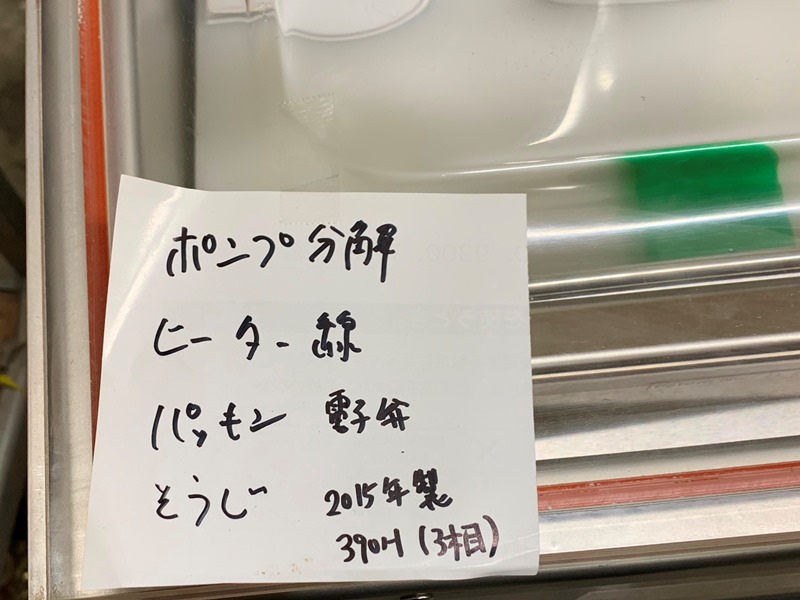 ポンプ分解
ヒーター線
パッキン 電子弁
そうじ 2015年製
390H (3相)